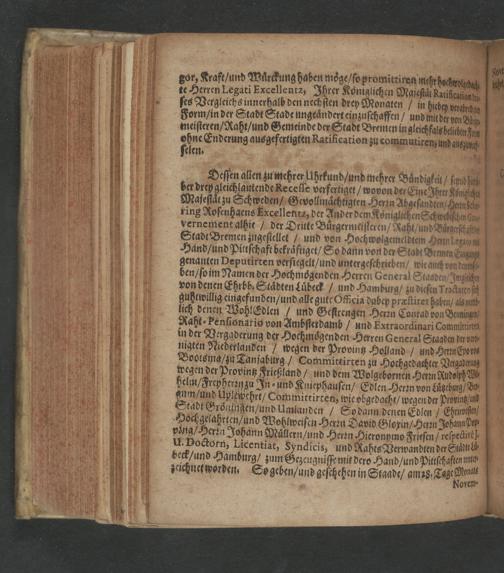 gor, Krafft/und Würckung haben möge/so promittiren mehr hocherwehn-
te Herren Legati Excellentz, Ihrer Königlichen Majestät Ratification
ses Vergleichs innerhalb den nechsten drey Monaten / in hiebey
Form/in der Stadt Stade ungeändert einzuschaffen/ und mit der von Bürge-
meisteren/Raht/und Gemeinde der Stadt Bremen in gleichfals beliebten Form
ohne Enderung ausgefertigten Ratification zu commutiren, und auszuwech-
selen.
Dessen allen zu mehrer Uhrkund/und mehrer Bündigkeit / seynd
ber drey gleichlautende Recesse verfertiget/ wovon der Eine Ihrer Königlichen
Majestät zu Schweden/ Gevollmächtigten Herrn Abgesandten/Herrn
ring Rosenhaens Excellentz, der Ander dem Königlichen Schwedischen Gou-
vernement alhie / der Dritte Bürgermeisteren/ Raht/ und Bürgerschafft
Stadt Bremen zugestellet / und von Hochwolgemeldtem Herrn Legato mit
Hand/und Pittschafft bekräfftiget/ So dann von der Stadt Bremen Eingangs
genanten Deputirten versiegelt/und untergeschrieben/ wie auch von
ben/so im Namen der Hochmögenden Herren General Staaden/Imgleichen
von denen Ehrbb. Städten Lübeck / und Hamburg/ zu diesen Tractaten sich
guthwillig eingefunden/und alle gute Officia dabey præstiret haben/ als nemb-
lich denen WohlEdlen / und Gestrengen Herrn Conrad von Beuningen/
Raht-Pensionario von Ambsterdamb / und Extraordinari Committirten
in der Vergaderung der Hochmögenden Herren General Staaden der verei-
nigten Niederlanden / wegen der Provintz Holland / und Herrn
Bootsma/ zu Tanjaburg / Committirten zu Hochgedachter Vergaderung
wegen der Provintz Frießland/ und dem Wolgebornen Herrn Rudolph Wil-
helm/ Freyherrn zu In- und Kniephausen/ Edlen Herrn von Lützburg/
gum/und Uplewehrt/ Committirten, wie obgedacht/ wegen der Provintz/und
Stadt Gröningen/und Umlanden / So dann denen Edlen / Ehrenvesten/
Hochgelahrten/und Wohlweisen Herrn David Gloxin/ Herrn Johann Pop-
ping/ Herrn Johann Müllern/und Herrn Hieronymo Friesen/ respectivè J.
U. Doctorn, Licentiat, Syndicis, und Rahts Verwandten der Städte Lü-
beck/und Hamburg/ zum Gezeugnisse mit dero Hand/und Pittschafften unter-
zeichnet worden. So geben/und geschehen in Staade/ am 28. Tage Monats
Novem-